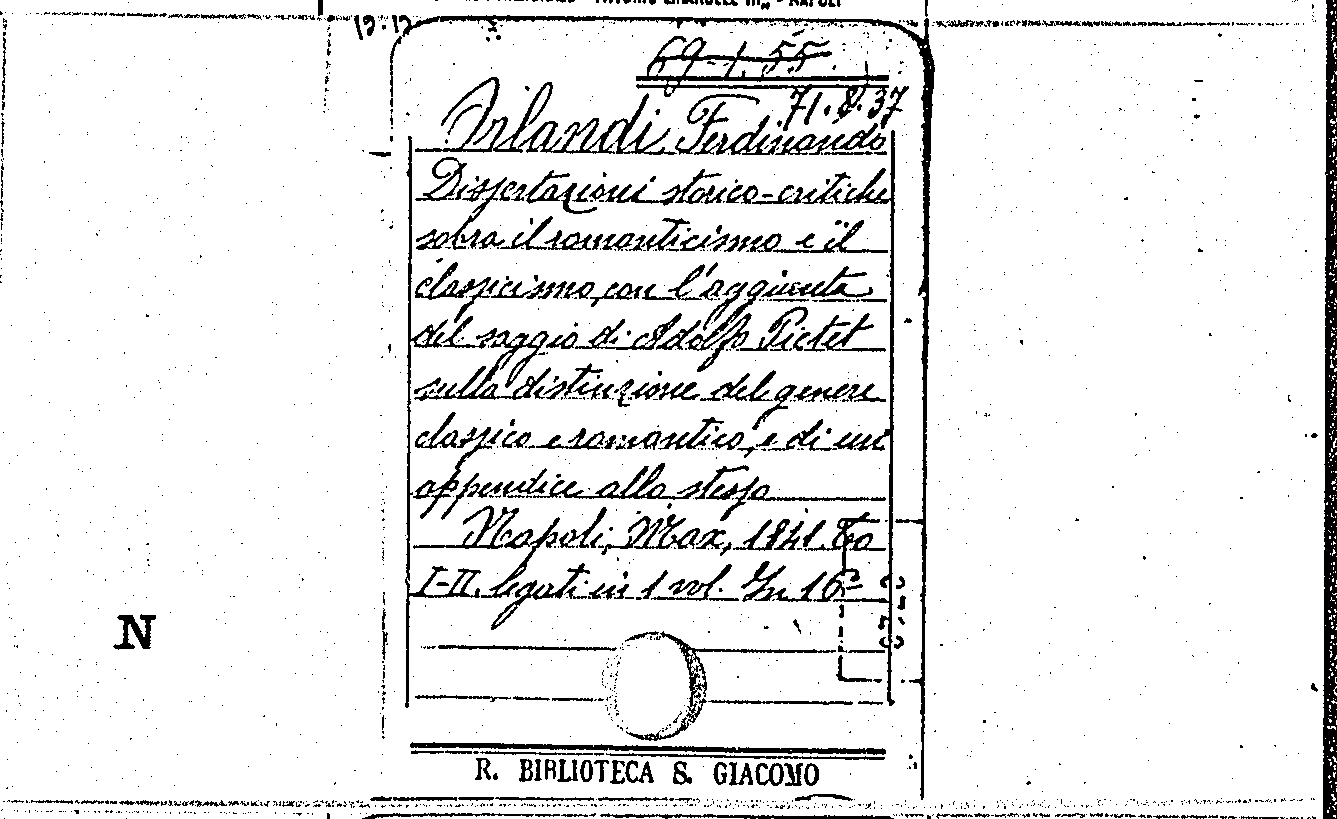 69-1.55.
71.8.37
Orlandi Ferdinando
Dissertazioni storico-critiche
sobra il romanticismo e il
classicismo, con l'aggiunta
del saggio di Adolfo Pictet
sulla distinzione del genere
classico e romantico, e di un'
appendice allo stesso
Napoli, Max, 1841. To
I-II. legati in 1 vol. In 16º
N
R. BIBLIOTECA S. GIACOMO